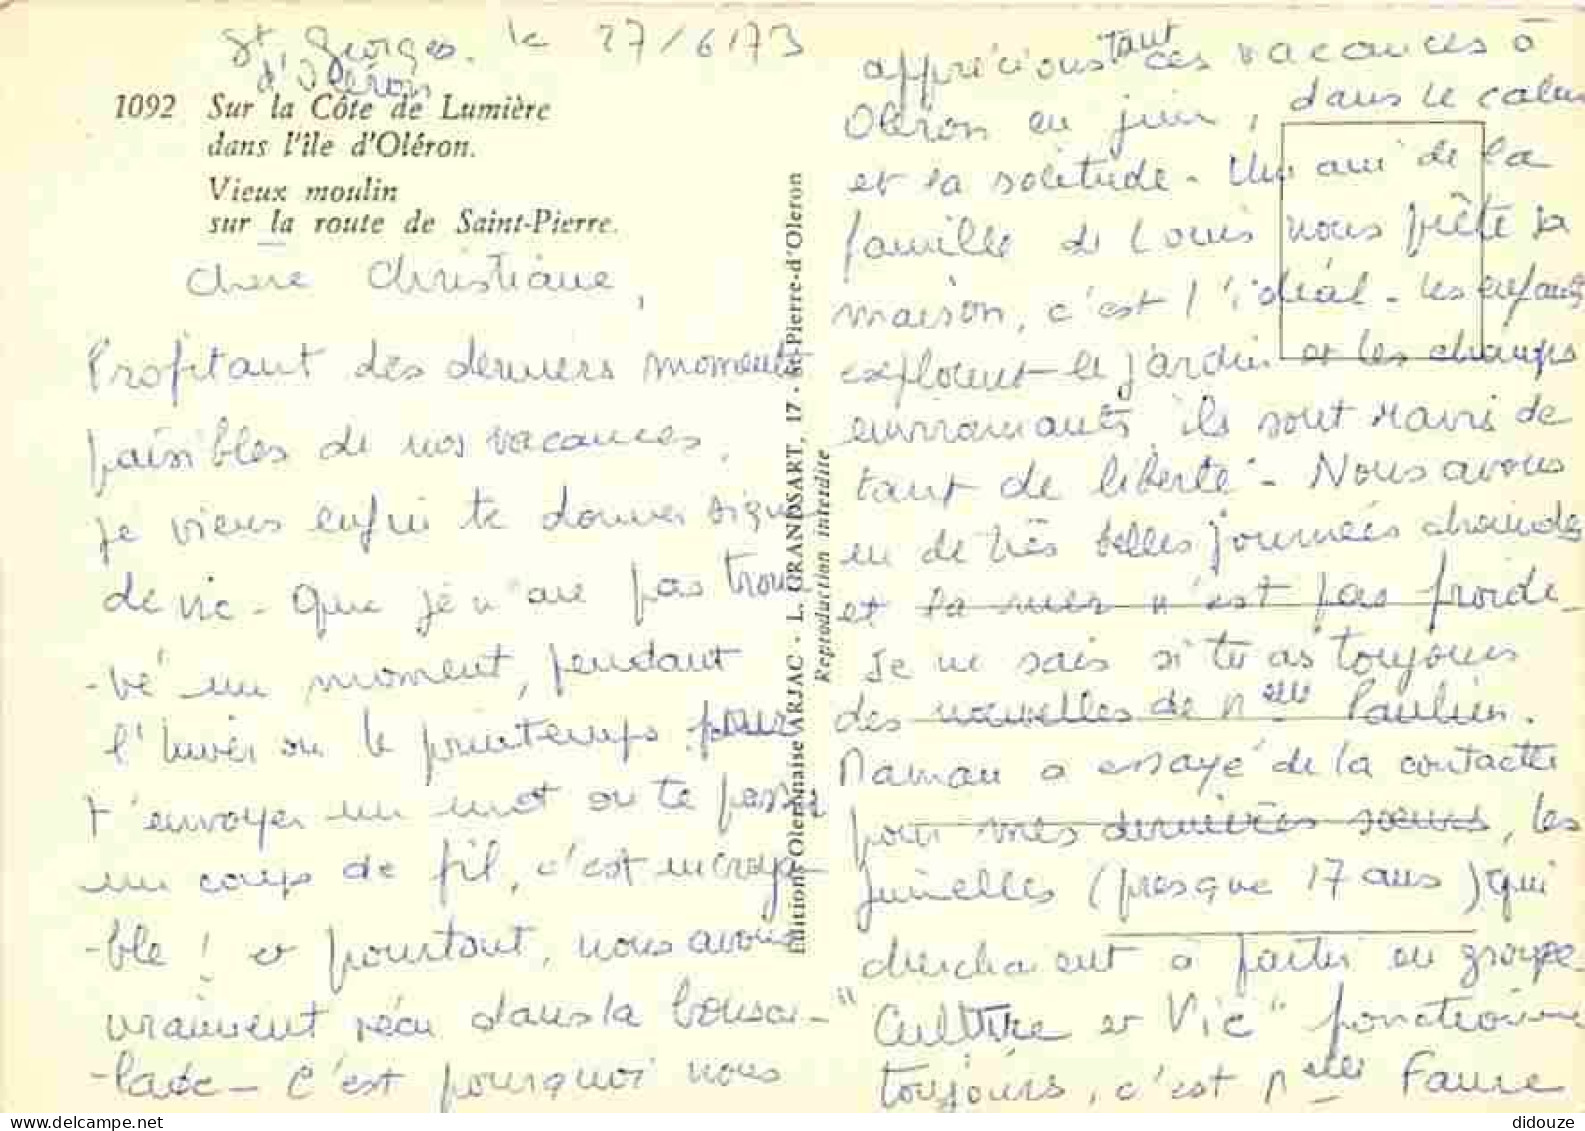 St Georges. le 27/6/73
d'Oléron
1092 Sur la Côte de Lumière
dans l'île d'Oléron.
Vieux moulin
sur la route de Saint-Pierre.
Chère Christiane,
Profitant des derniers moments
paisibles de nos vacances,
je viens enfin te donner signe
de vie - Que je n'aie pas trou
-vé un moment, pendant
l'hiver ou le printemps pour
t'envoyer un mot ou te passer
un coup de fil, c'est incroya-
-ble ! et pourtant, nous avons
vraiment vécu dans la bouscu-
-lade - C'est pourquoi nous
Editions Oleronnaise ARJAC - L. GRANDSART, 17 - St-Pierre-d'Oleron
Reproduction interdite
apprécions tant ces vacances à
Oléron en juin, dans le calme
et la solitude - Un ami de la
famille de Louis nous prête sa
maison, c'est l'idéal - les enfants
explorent le jardin et les champs
environnants, ils sont ravis de
tant de liberté - Nous avons
eu de très belles journées chaudes
et la mer n'est pas froide -
Je ne sais si tu as toujours
des nouvelles de Melle Paulin.
Maman a essayé de la contacter
pour mes dernières sœurs, les
jumelles (presque 17 ans) qui
cherchaient à partir en groupe
"Culture et Vie" fonctionne
toujours, c'est Melle Faure
didouze